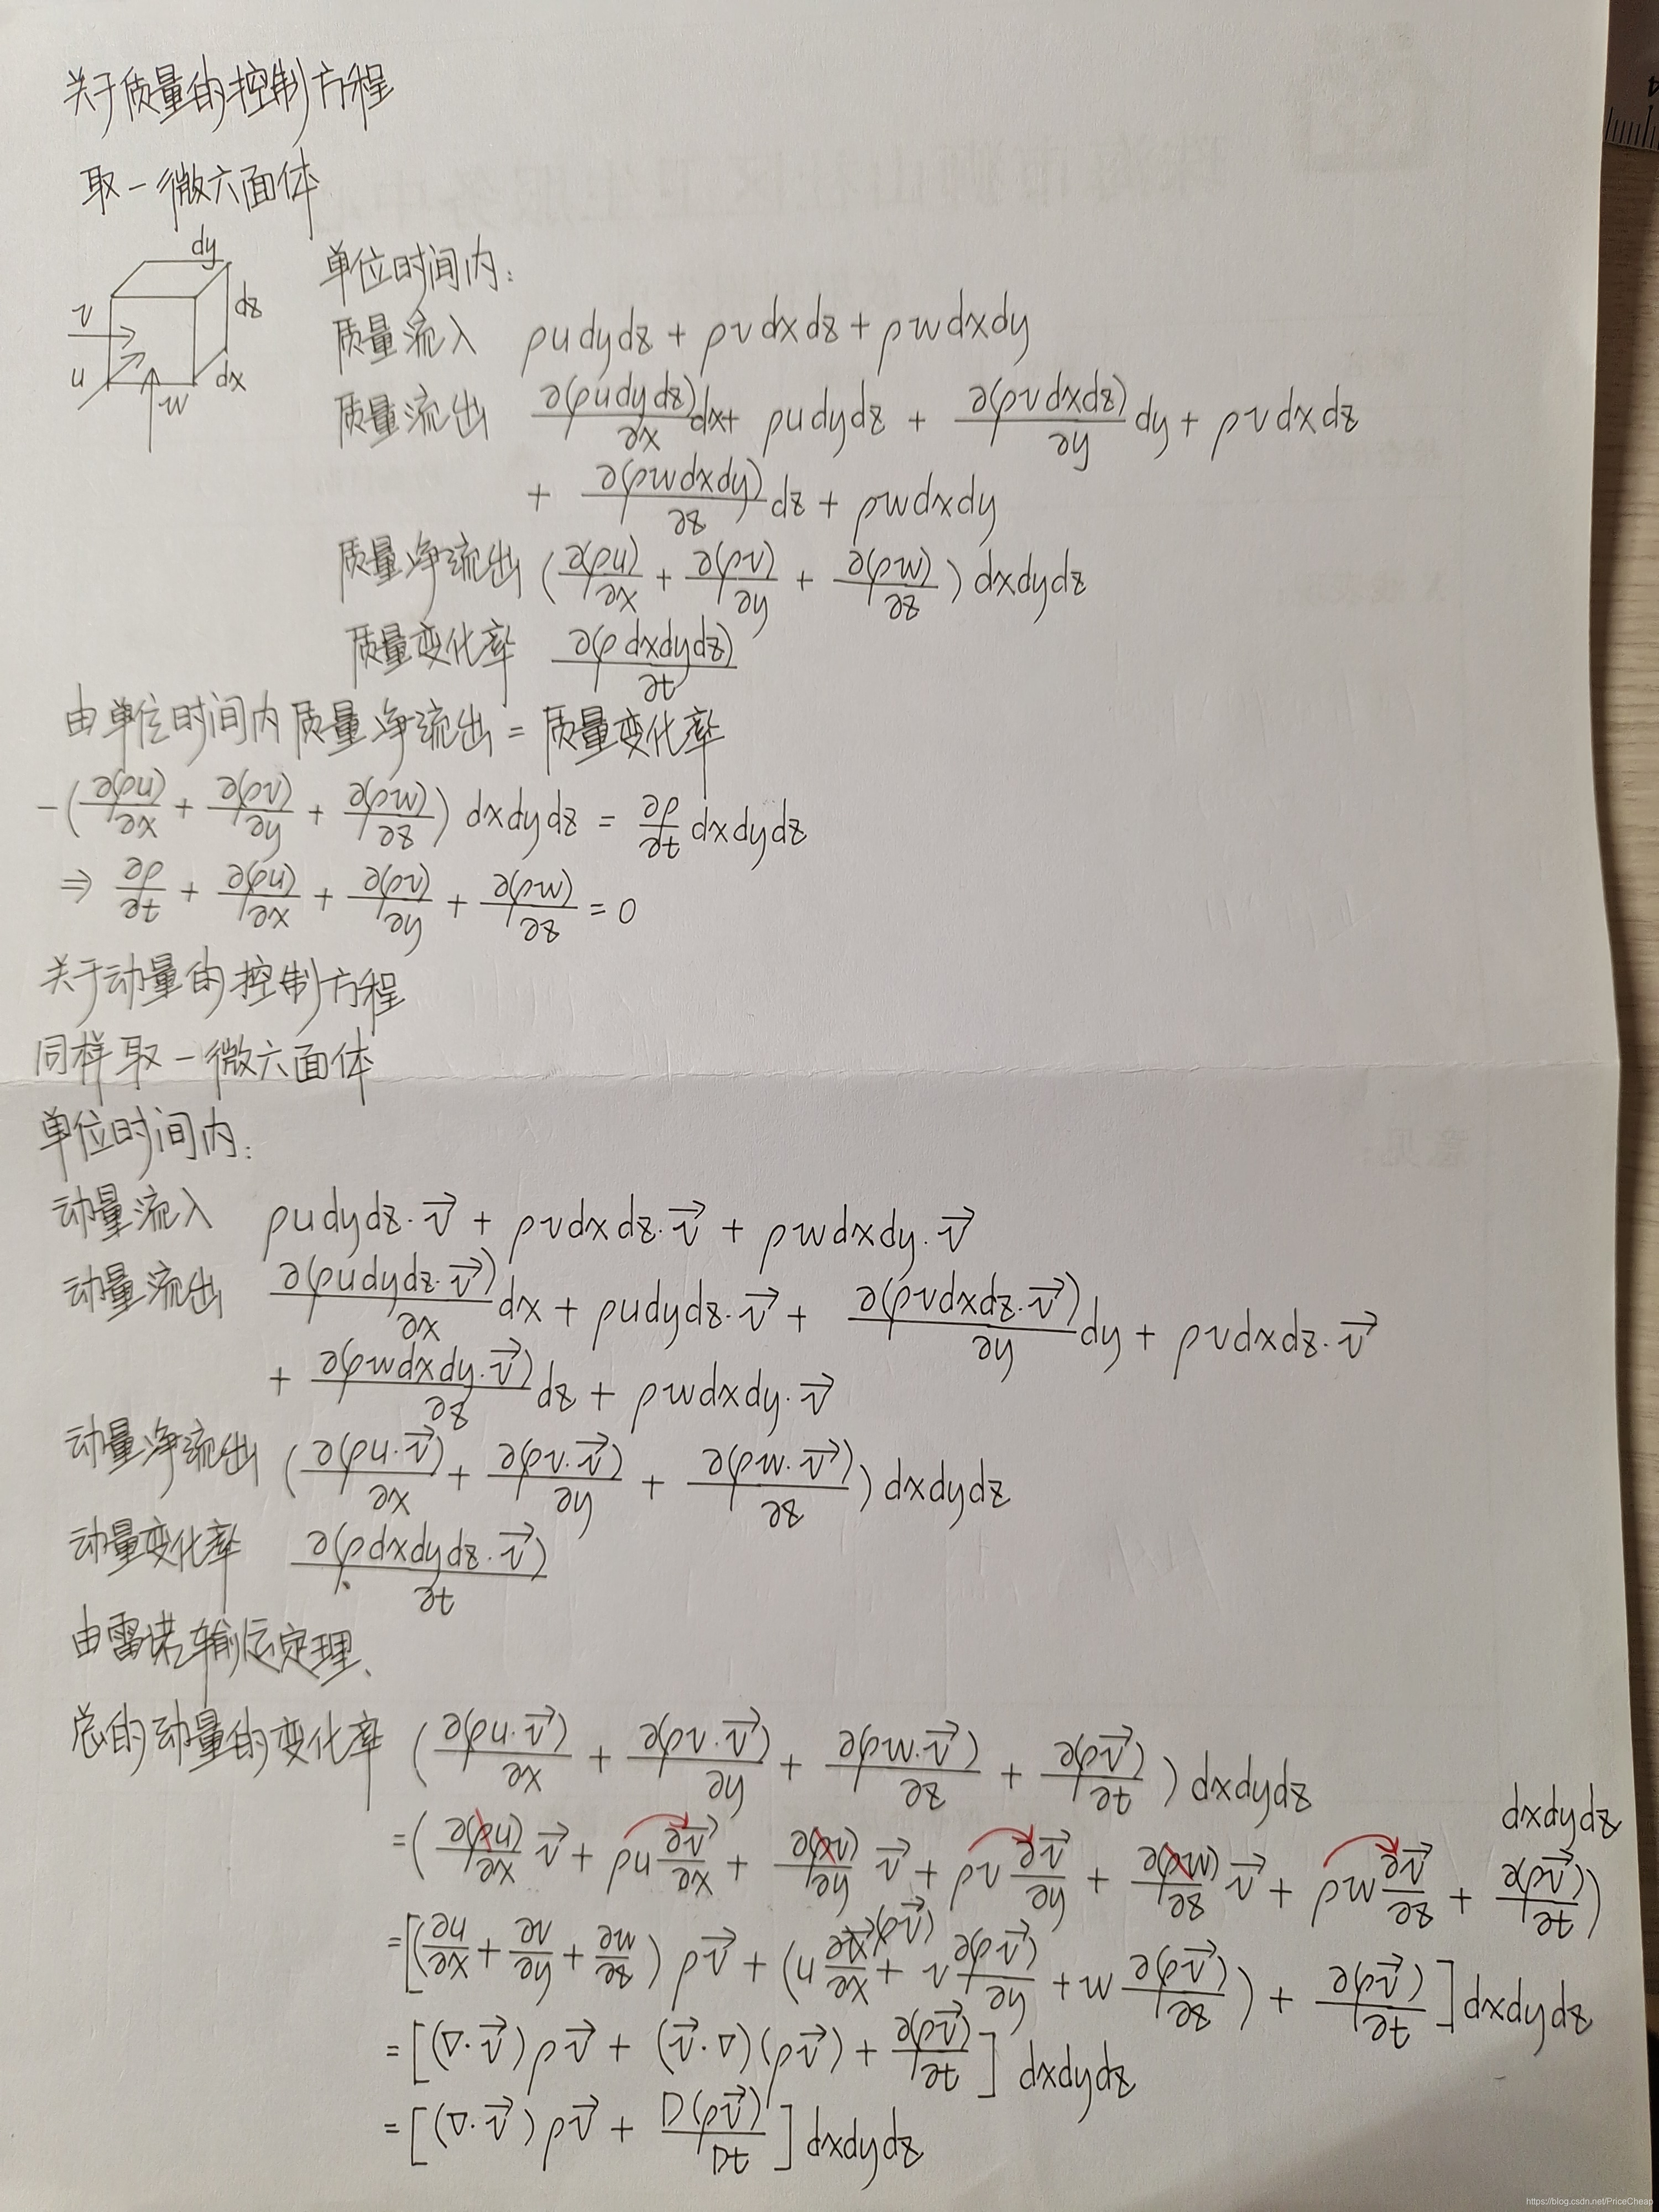 关于质量的控制方程
取一微六面体
dy
dz
v
u
dx
w
单位时间内:
质量流入 ρudydz + ρvdxdz + ρwdxdy
质量流出 ∂(ρudydz)/∂x dx + ρudydz + ∂(ρvdxdz)/∂y dy + ρvdxdz
+ ∂(ρwdxdy)/∂z dz + ρwdxdy
质量净流出 (∂(ρu)/∂x + ∂(ρv)/∂y + ∂(ρw)/∂z) dxdydz
质量变化率 ∂(ρdxdydz)/∂t
由单位时间内质量净流出 = 质量变化率
-(∂(ρu)/∂x + ∂(ρv)/∂y + ∂(ρw)/∂z) dxdydz = ∂ρ/∂t dxdydz
⇒ ∂ρ/∂t + ∂(ρu)/∂x + ∂(ρv)/∂y + ∂(ρw)/∂z = 0
关于动量的控制方程
同样取一微六面体
单位时间内:
动量流入 ρudydz·v⃗ + ρvdxdz·v⃗ + ρwdxdy·v⃗
动量流出 ∂(ρudydz·v⃗)/∂x dx + ρudydz·v⃗ + ∂(ρvdxdz·v⃗)/∂y dy + ρvdxdz·v⃗
+ ∂(ρwdxdy·v⃗)/∂z dz + ρwdxdy·v⃗
动量净流出 (∂(ρu·v⃗)/∂x + ∂(ρv·v⃗)/∂y + ∂(ρw·v⃗)/∂z) dxdydz
动量变化率 ∂(ρdxdydz·v⃗)/∂t
由雷诺输运定理、
总的动量的变化率 (∂(ρu·v⃗)/∂x + ∂(ρv·v⃗)/∂y + ∂(ρw·v⃗)/∂z + ∂(ρv⃗)/∂t) dxdydz
= (∂(ρu)/∂x v⃗ + ρu ∂v⃗/∂x + ∂(ρv)/∂y v⃗ + ρv ∂v⃗/∂y + ∂(ρw)/∂z v⃗ + ρw ∂v⃗/∂z + ∂(ρv⃗)/∂t) dxdydz
= [(∂u/∂x + ∂v/∂y + ∂w/∂z) ρv⃗ + (u ∂(ρv⃗)/∂x + v ∂(ρv⃗)/∂y + w ∂(ρv⃗)/∂z) + ∂(ρv⃗)/∂t] dxdydz
= [(∇·v⃗)ρv⃗ + (v⃗·∇)(ρv⃗) + ∂(ρv⃗)/∂t] dxdydz
= [(∇·v⃗)ρv⃗ + D(ρv⃗)/Dt] dxdydz
https://blog.csdn.net/PriceCheap